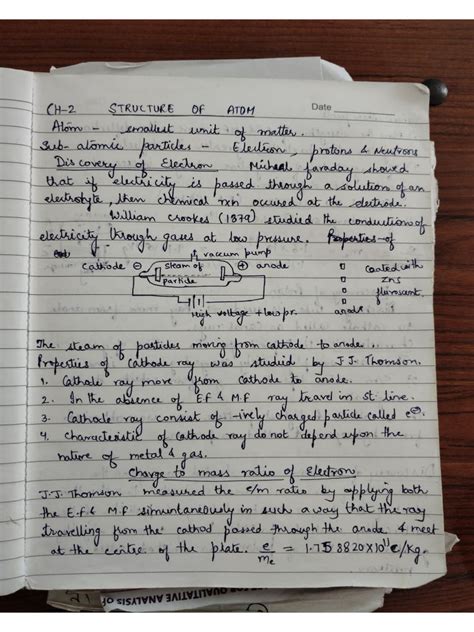 CH-2 STRUCTURE OF ATOM Date
Atom - smallest unit of matter.
Sub-atomic particles - Electron, protons & Neutrons
Discovery of Electron Micheal faraday showed
that if electricity is passed through a solution of an
electrolyte, then chemical rxn occured at the electrode.
William Crookes (1879) studied the conduction of
electricity through gases at low pressure. Properties of
vaccum pump
cathode ⊖ steam of ⊕ anode coated with
particle ZnS
fluroscent
High voltage + low pr. anode
The steam of particles moving from cathode to anode.
Properties of cathode ray was studied by J.J. Thomson.
1. Cathode ray move from cathode to anode.
2. In the absence of E.F & M.F ray travel in st line.
3. Cathode ray consist of -ively charged particle called e⊖.
4. characteristic of cathode ray do not depend upon the
nature of metal & gas.
Charge to mass ratio of Electron
J.J. Thomson measured the e/m ratio by applying both
the E.F & M.F simuntaneously in such a way that the ray
travelling from the cathod passed through the anode & meet
at the centre of the plate. e/me = 1.758820X10¹¹c/kg.
FOR QUALITATIVE ANALYSIS OF